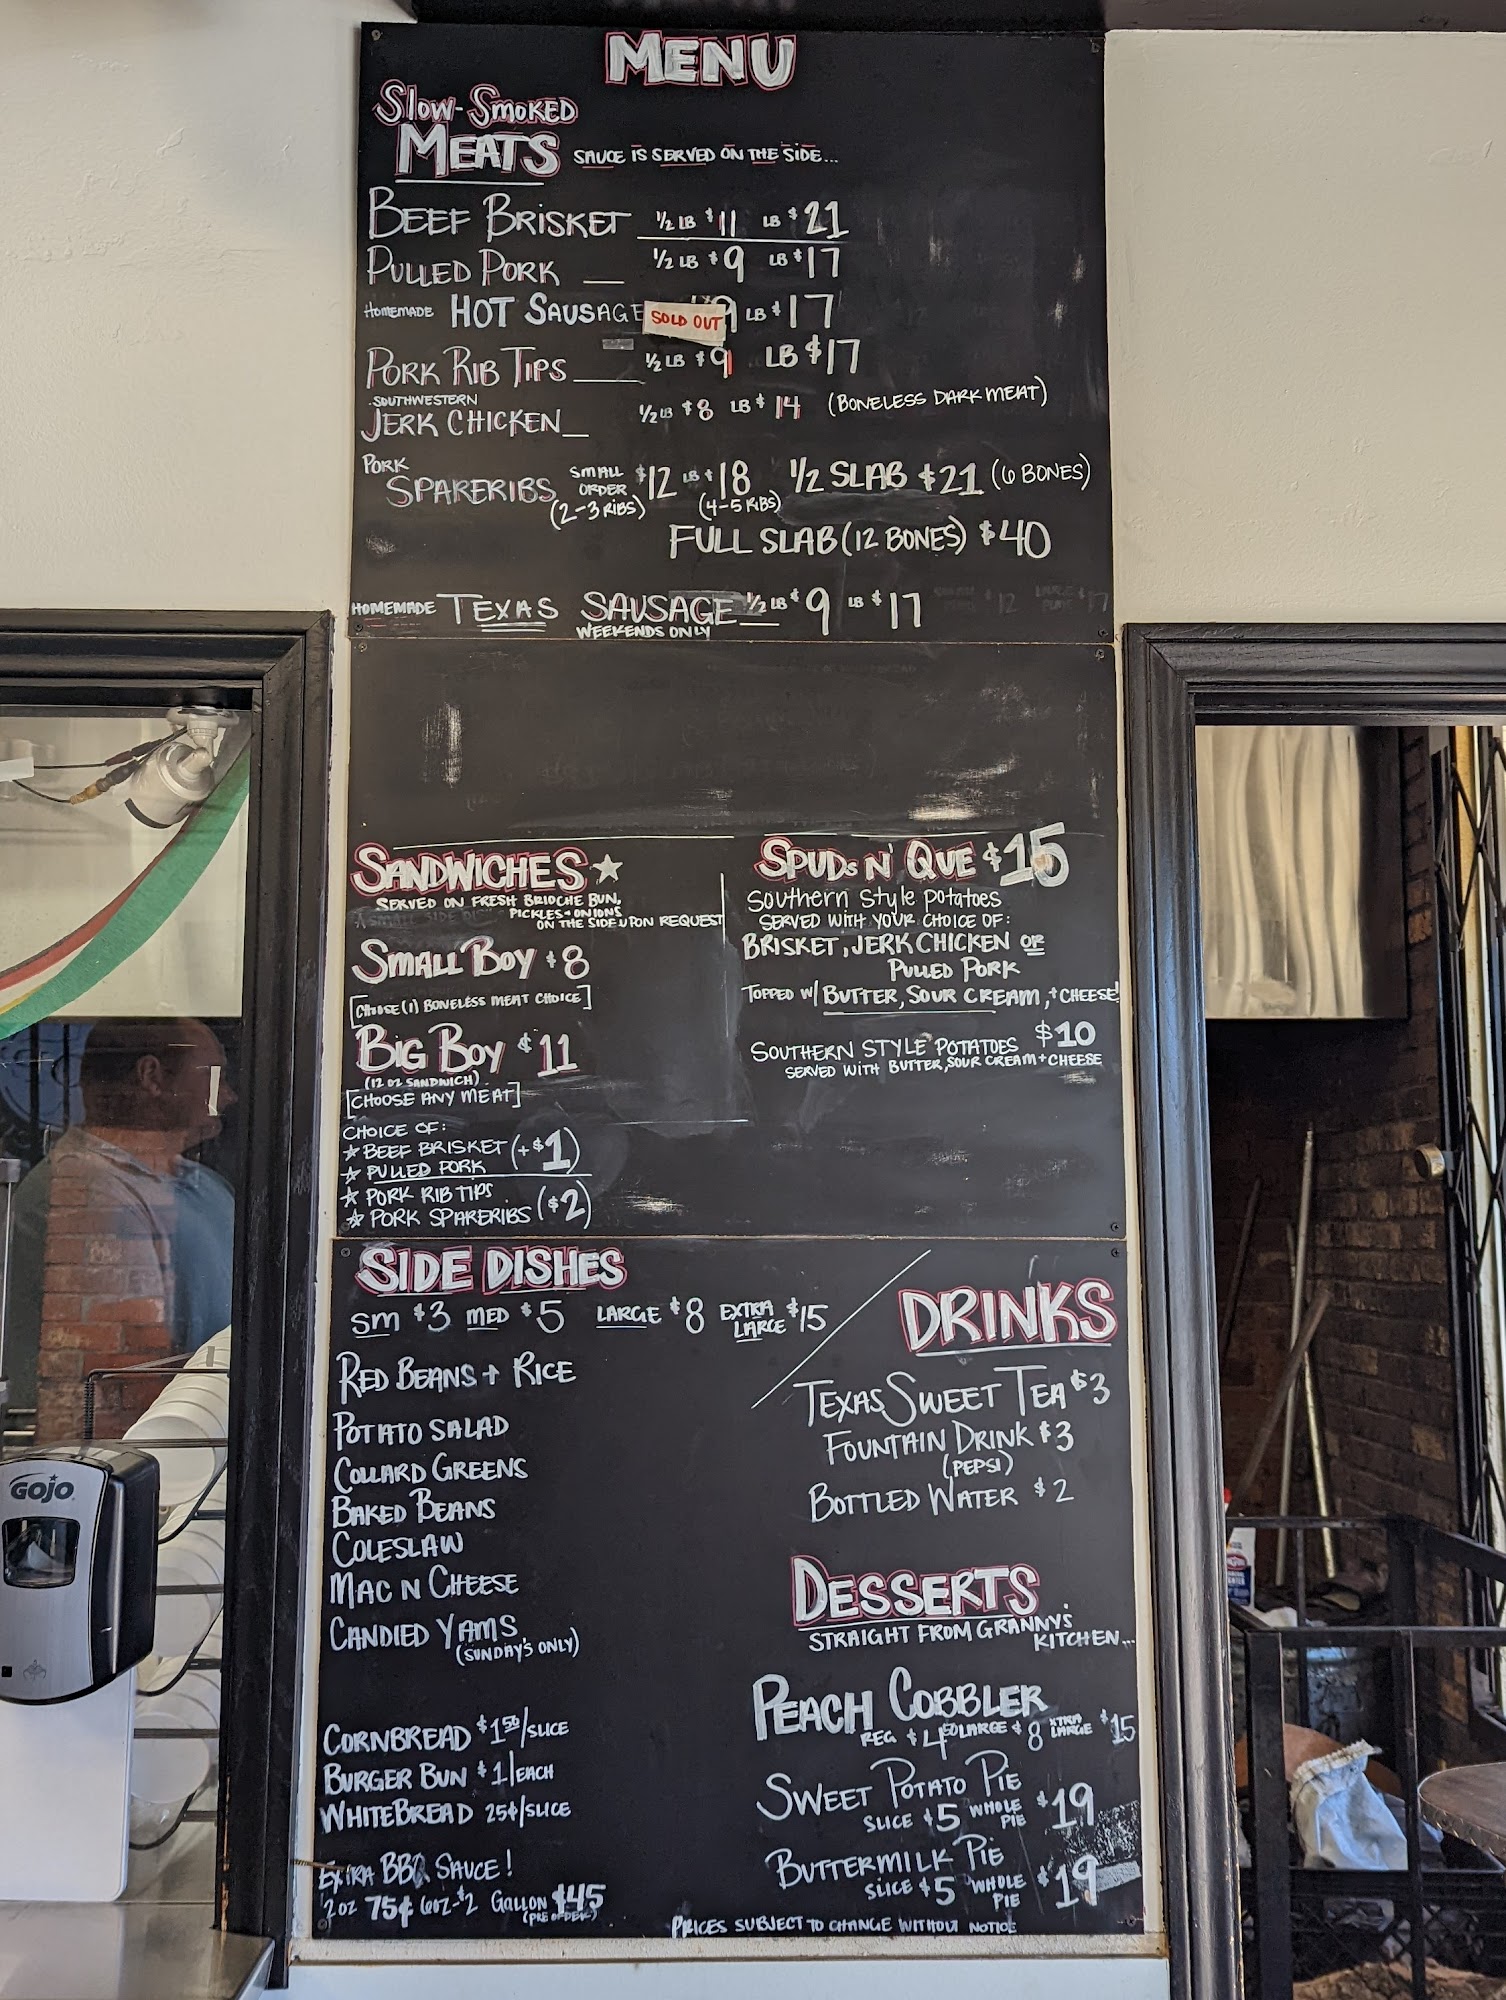 MENU
SLOW-SMOKED
MEATS SAUCE IS SERVED ON THE SIDE...
BEEF BRISKET 1/2 LB $11 LB $21
PULLED PORK 1/2 LB $9 LB $17
HOMEMADE HOT SAUSAGE SOLD OUT 9 LB $17
PORK RIB TIPS 1/2 LB $9 LB $17
SOUTHWESTERN
JERK CHICKEN 1/2 LB $8 LB $14 (BONELESS DARK MEAT)
PORK
SPARERIBS SMALL ORDER $12 LB $18 1/2 SLAB $21 (6 BONES)
(2-3 RIBS) (4-5 RIBS)
FULL SLAB (12 BONES) $40
HOMEMADE TEXAS SAUSAGE 1/2 LB $9 LB $17
WEEKENDS ONLY
SANDWICHES
SERVED ON FRESH BRIOCHE BUN,
PICKLES + ONIONS
ON THE SIDE UPON REQUEST
SMALL BOY $8
[CHOOSE (1) BONELESS MEAT CHOICE]
BIG BOY $11
(12 OZ SANDWICH)
[CHOOSE ANY MEAT]
CHOICE OF:
☆ BEEF BRISKET (+$1)
☆ PULLED PORK
☆ PORK RIB TIPS
☆ PORK SPARERIBS ($2)
SPUDS N' QUE $15
Southern Style Potatoes
SERVED WITH YOUR CHOICE OF:
BRISKET, JERK CHICKEN OR
PULLED PORK
TOPPED W/ BUTTER, SOUR CREAM, + CHEESE!
SOUTHERN STYLE POTATOES $10
SERVED WITH BUTTER, SOUR CREAM + CHEESE
SIDE DISHES
SM $3 MED $5 LARGE $8 EXTRA LARGE $15
RED BEANS + RICE
POTATO SALAD
COLLARD GREENS
BAKED BEANS
COLESLAW
MAC N CHEESE
CANDIED YAMS
(SUNDAY'S ONLY)
CORNBREAD $1.50/SLICE
BURGER BUN $1/EACH
WHITEBREAD 25¢/SLICE
EXTRA BBQ SAUCE!
2 OZ 75¢ 6OZ-$2 GALLON $45
(PRE ORDER)
DRINKS
TEXAS SWEET TEA $3
FOUNTAIN DRINK $3
(PEPSI)
BOTTLED WATER $2
DESSERTS
STRAIGHT FROM GRANNY'S
KITCHEN...
PEACH COBBLER
REG $4.50 LARGE $8 XTRA LARGE $15
SWEET POTATO PIE
SLICE $5 WHOLE PIE $19
BUTTERMILK PIE
SLICE $5 WHOLE PIE $19
PRICES SUBJECT TO CHANGE WITHOUT NOTICE
GOJO